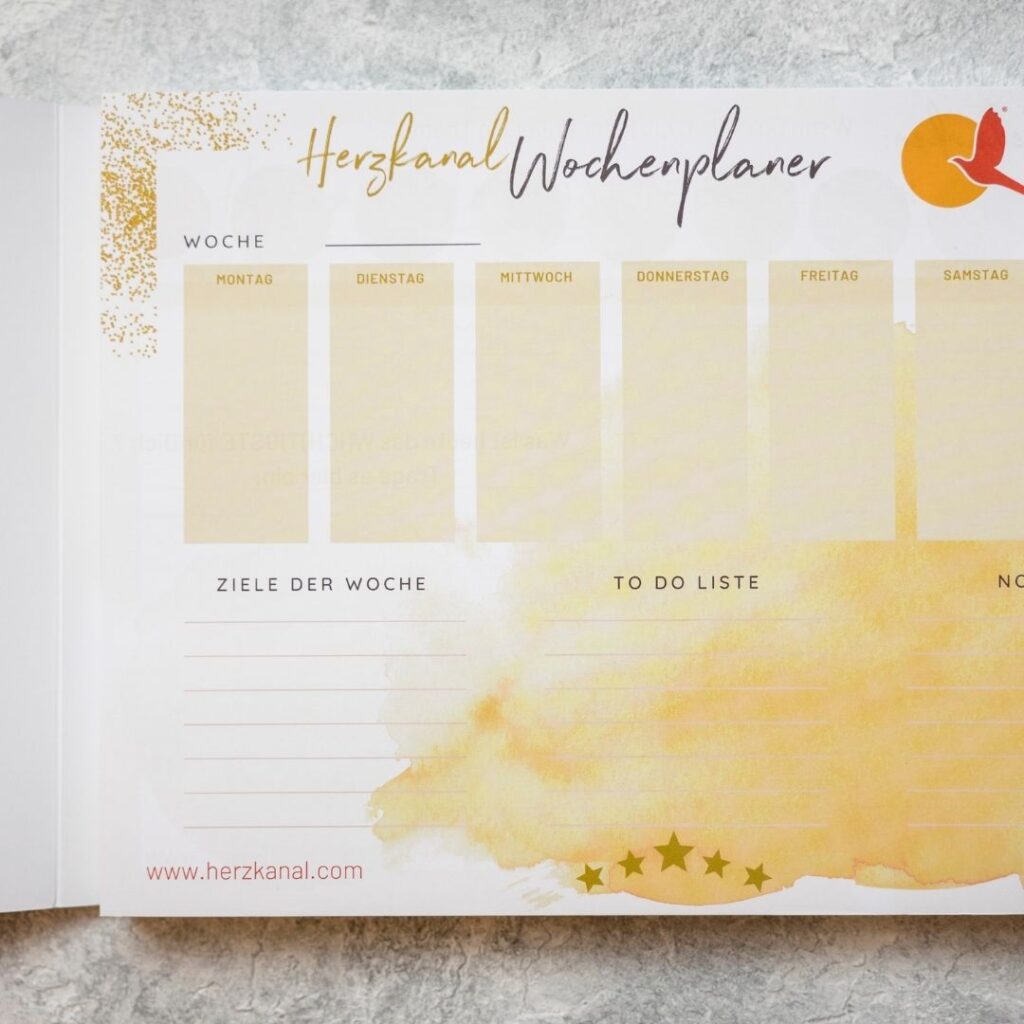 Herzkanal Wochenplaner
WOCHE
MONTAG DIENSTAG MITTWOCH DONNERSTAG FREITAG SAMSTAG
ZIELE DER WOCHE TO DO LISTE
www.herzkanal.com